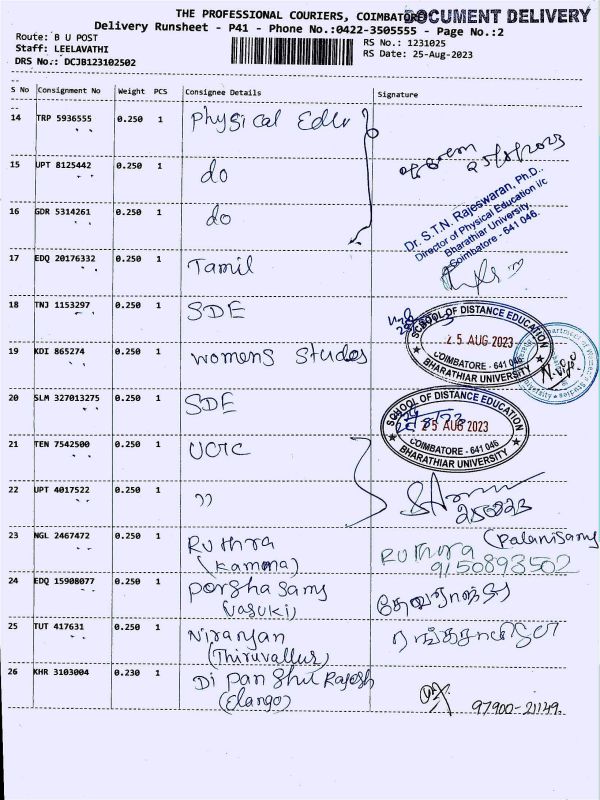 THE PROFESSIONAL COURIERS, COIMBATORE
DOCUMENT DELIVERY
Delivery Runsheet - P41 - Phone No.:0422-3505555 - Page No.:2
Route: B U POST
RS No.: 1231025
Staff: LEELAVATHI
RS Date: 25-Aug-2023
DRS No.: DCJB123102502
S No Consignment No Weight PCS Consignee Details Signature
14 TRP 5936555 0.250 1 Physical Edu
25/8/2023
15 UPT 8125442 0.250 1 do
Dr. S.T.N. Rajeswaran, Ph.D.,
Director of Physical Education i/c
Bharathiar University,
Coimbatore - 641 046.
16 GDR 5314261 0.250 1 do
17 EDQ 20176332 0.250 1 Tamil
18 TNJ 1153297 0.250 1 SDE
SCHOOL OF DISTANCE EDUCATION
25 AUG 2023
COIMBATORE - 641 046
BHARATHIAR UNIVERSITY
19 KDI 865274 0.250 1 womens Studes
20 SLM 327013275 0.250 1 SDE
SCHOOL OF DISTANCE EDUCATION
25 AUG 2023
COIMBATORE - 641 046
BHARATHIAR UNIVERSITY
21 TEN 7542500 0.250 1
22 UPT 4017522 0.250 1 ))
23 NGL 2467472 0.250 1 Ruthra
(Kamona)
Ruthra (Palanisamy
9150893502
24 EDQ 15908077 0.250 1 Porshasamy
(Vasuki)
25 TUT 417631 0.250 1 Niranjan
(Thiruvallur)
26 KHR 3103004 0.230 1 Dipanshu Rajesh
(Elango)
97900-21149.